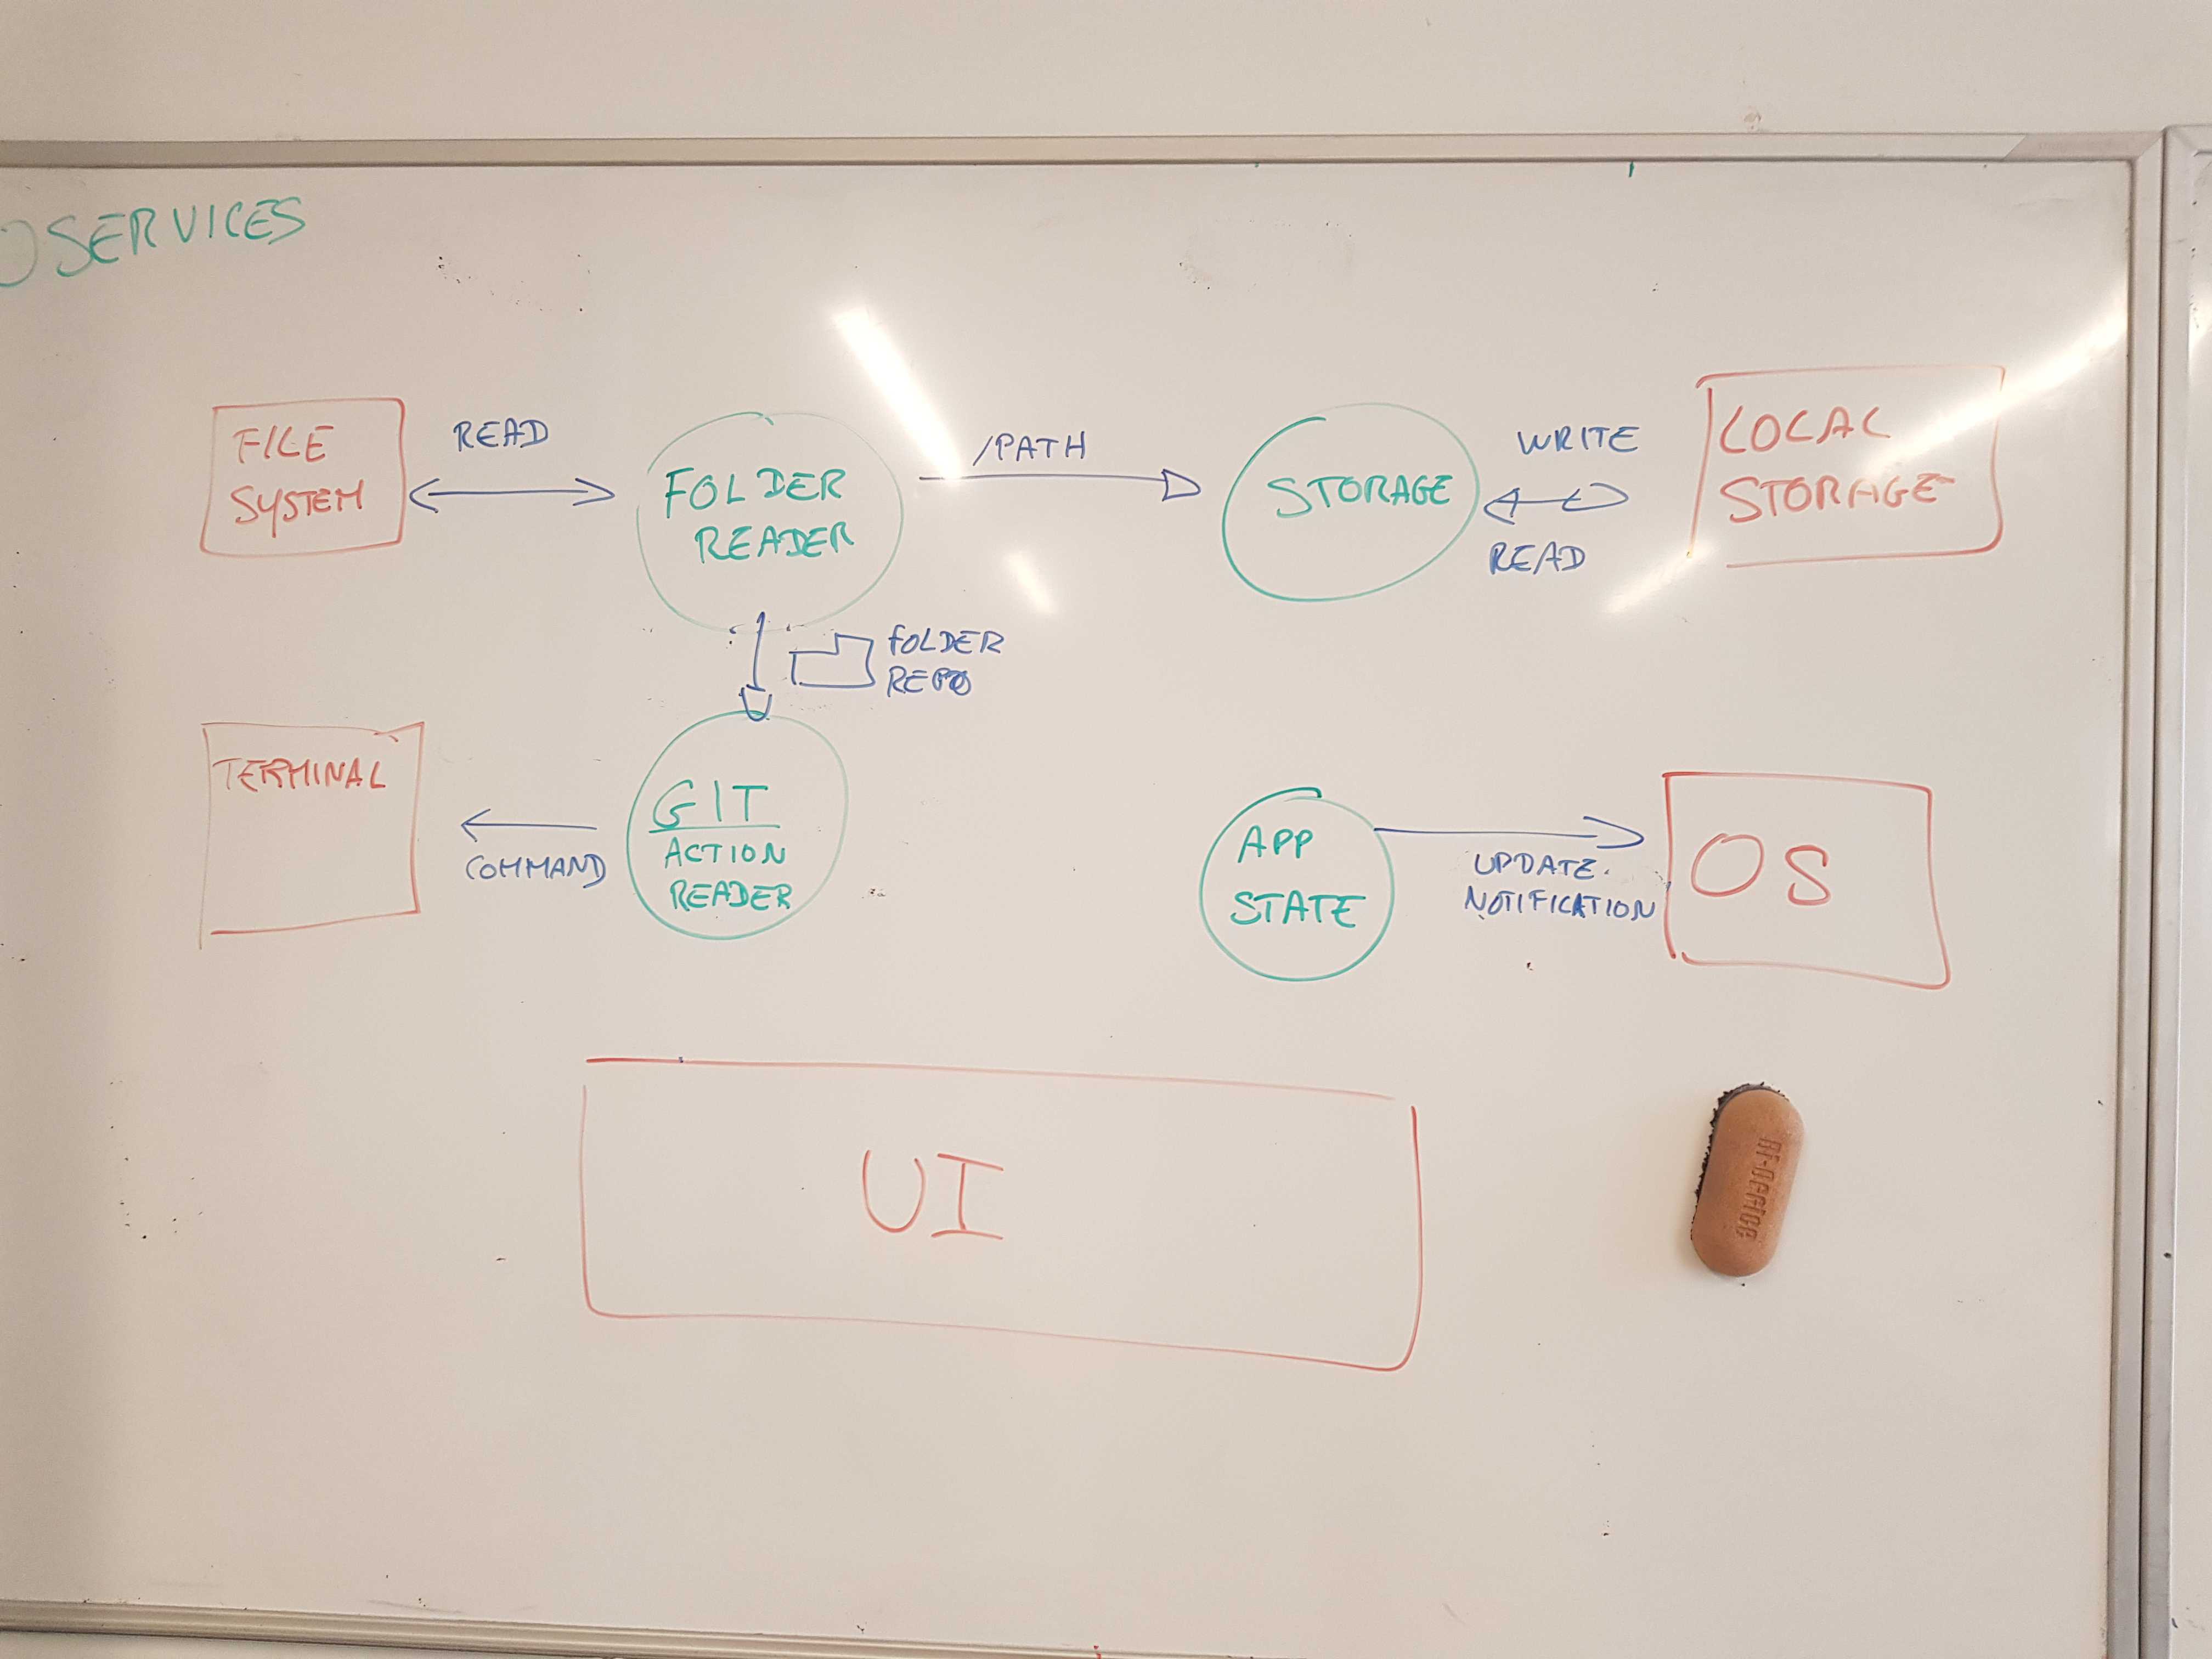 SERVICES
FILE
SYSTEM
READ
FOLDER
READER
/PATH
STORAGE
WRITE
READ
LOCAL
STORAGE
FOLDER
REPO
TERMINAL
COMMAND
GIT
ACTION
READER
APP
STATE
UPDATE.
NOTIFICATION
OS
UI